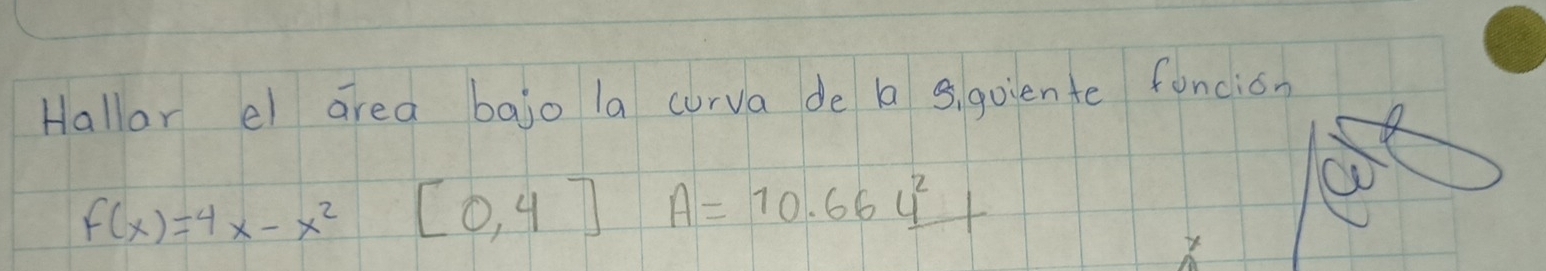 Hallar el área bajo la curva de la siguiente función
f(x)=4x-x² [0,4] A=10.66 u²
x